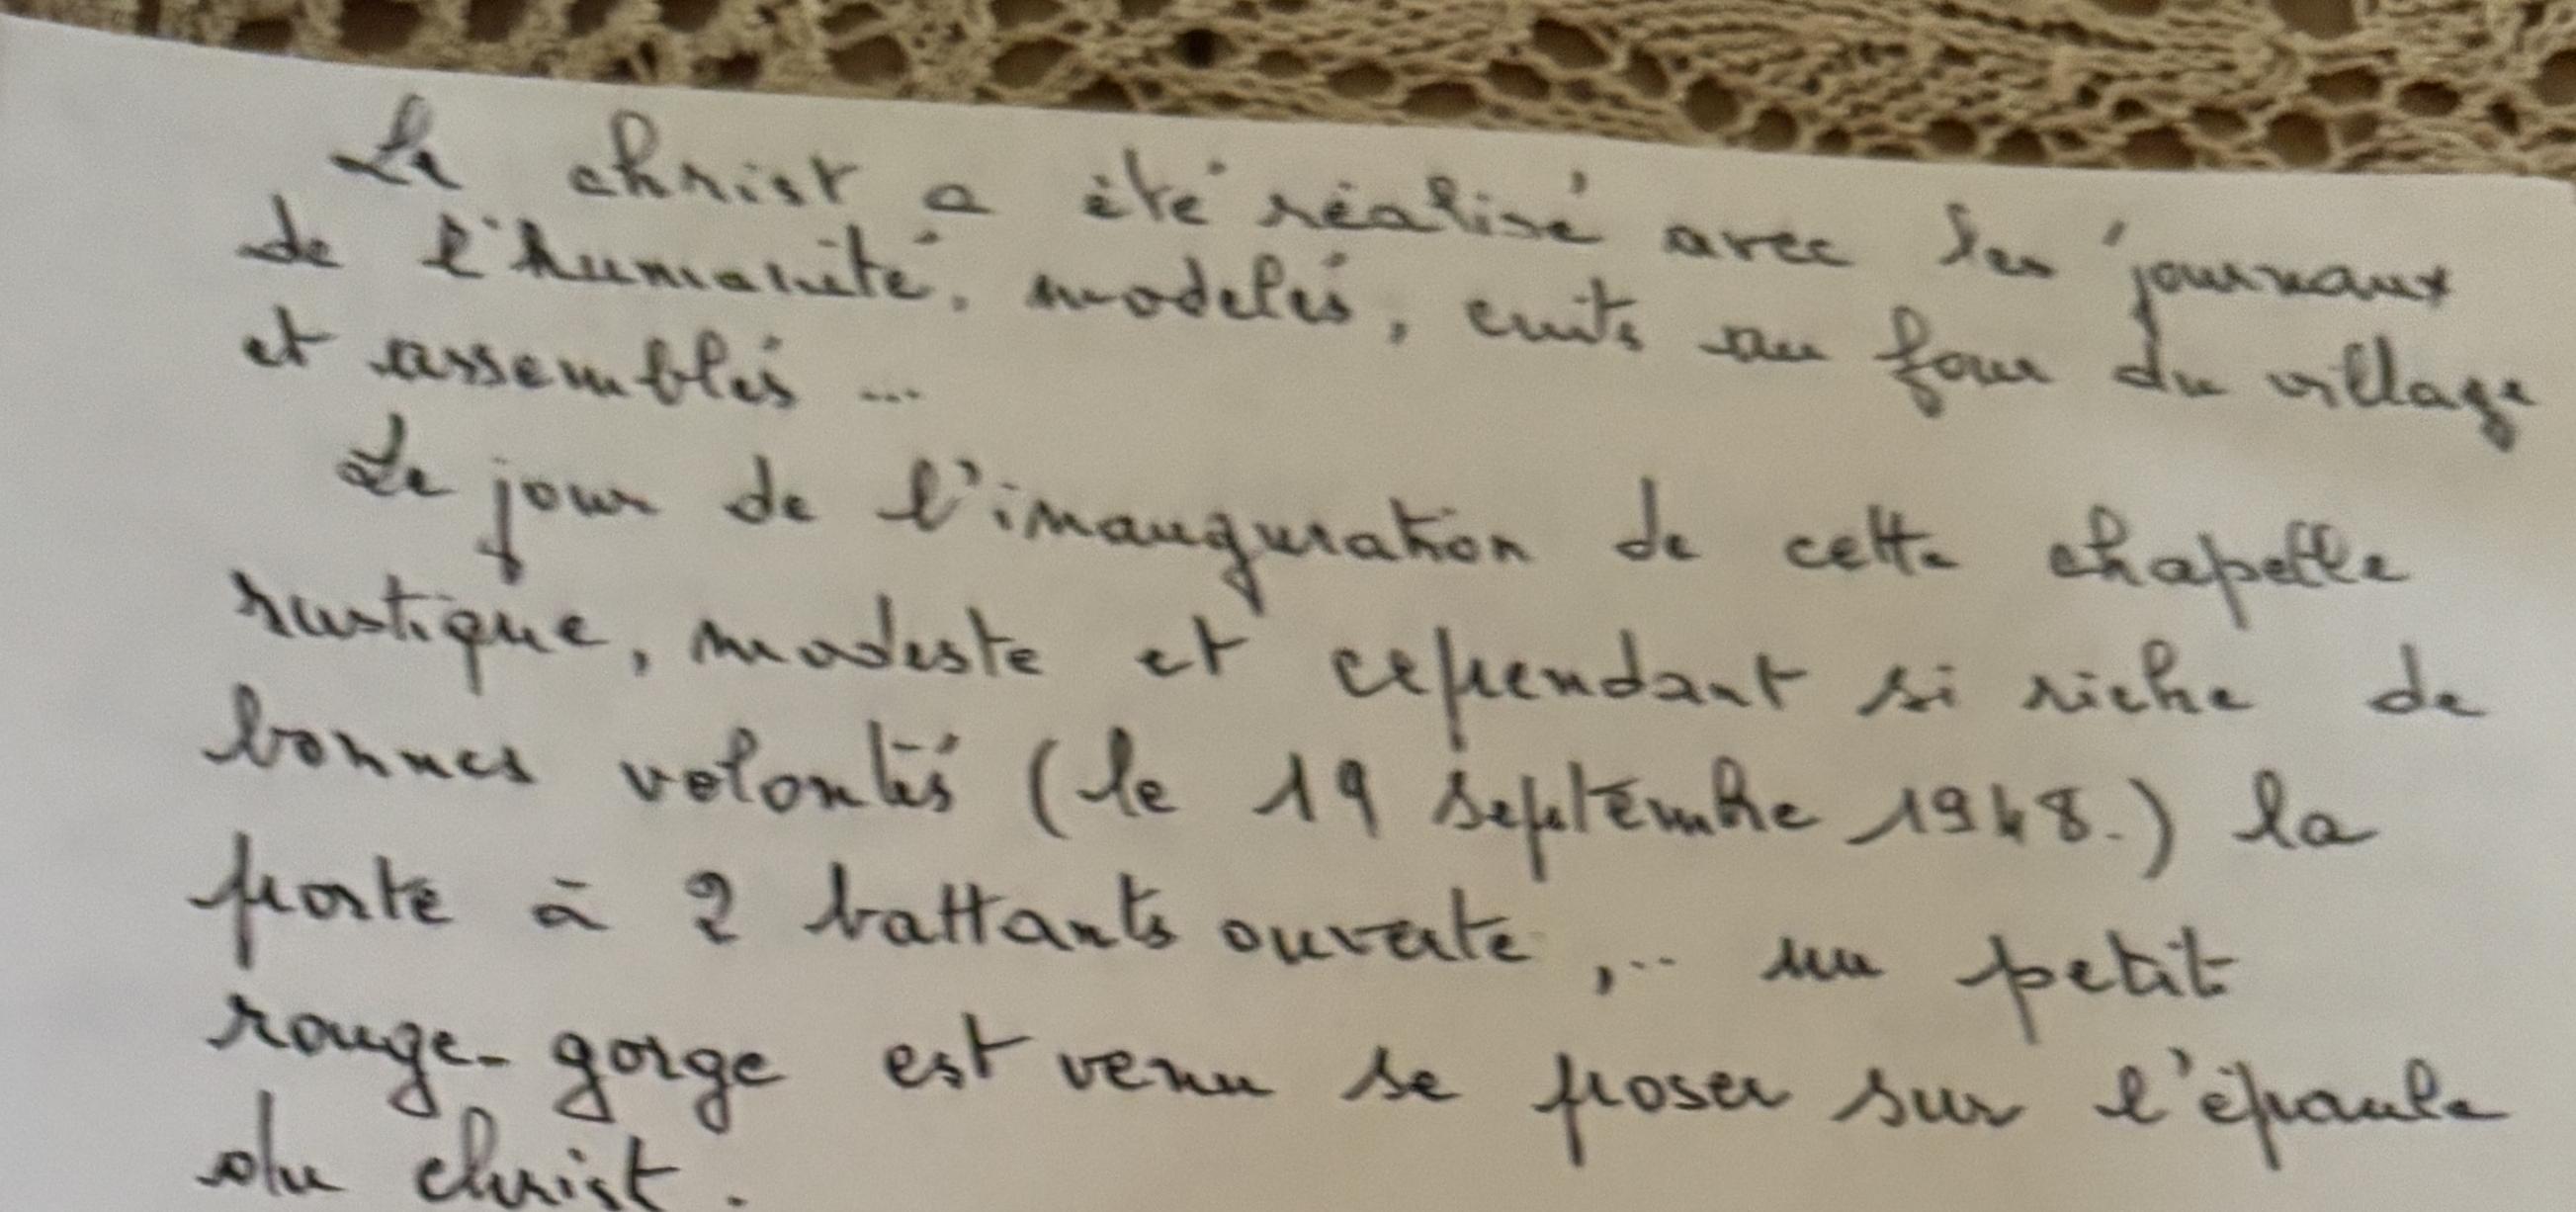 Le christ a été réalisé avec les journaux
de l'humanité, modelés, cuits au four du village
et assemblés ...
Le jour de l'inauguration de cette chapelle
rustique, modeste et cependant si riche de
bonnes volontés (le 19 septembre 1948.) la
porte à 2 battants ouverte, .. un petit
rouge-gorge est venu se poser sur l'épaule
du christ.